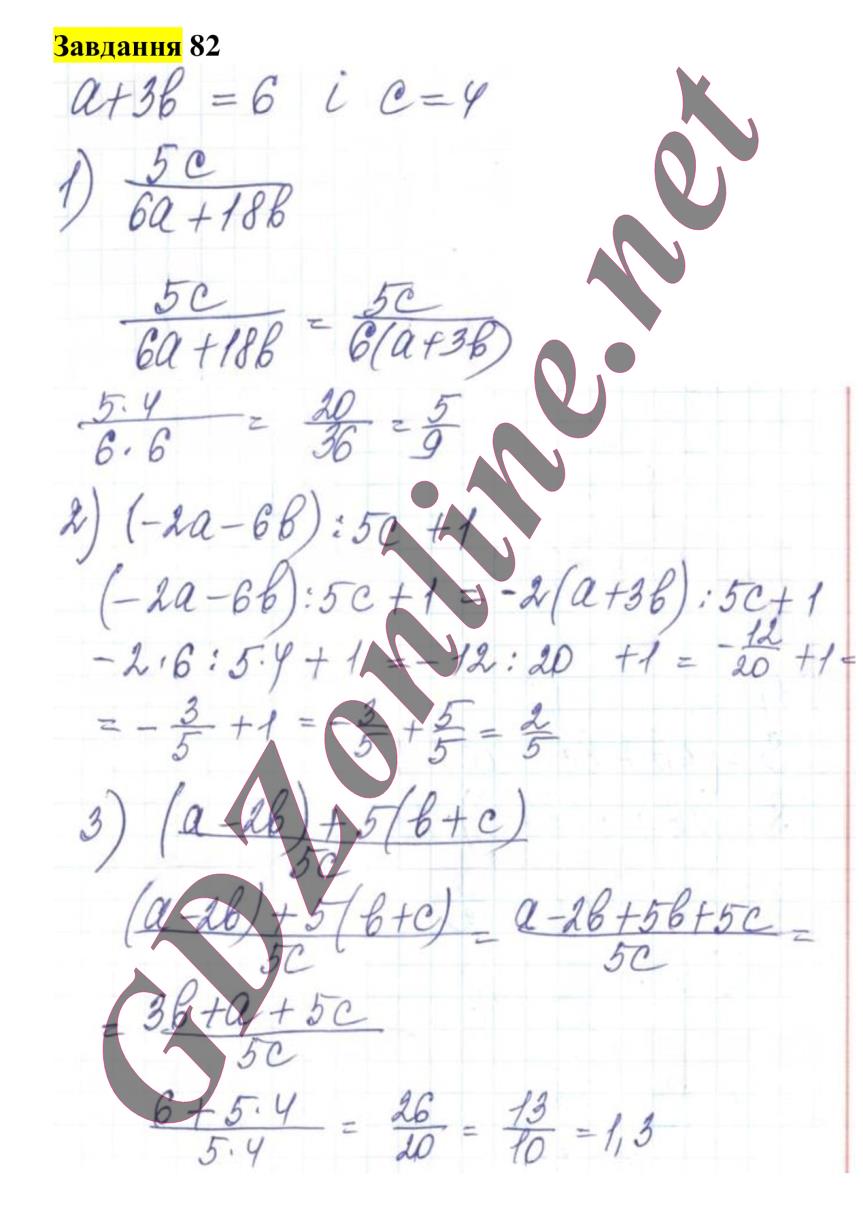 Завдання 82
a+3b = 6 і c = 4
1) 5c / (6a + 18b)
5c / (6a + 18b) = 5c / 6(a+3b)
5·4 / 6·6 = 20/36 = 5/9
2) (-2a-6b):5c +1
(-2a-6b):5c+1 = -2(a+3b):5c+1
-2·6:5·4+1 = -12:20 +1 = -12/20 +1 =
= -3/5 +1 = -3/5 + 5/5 = 2/5
3) (a-2b)+5(b+c) / 5c
(a-2b)+5(b+c) / 5c = a-2b+5b+5c / 5c =
= 3b+a+5c / 5c
6+5·4 / 5·4 = 26/20 = 13/10 = 1,3
GDZonline.net